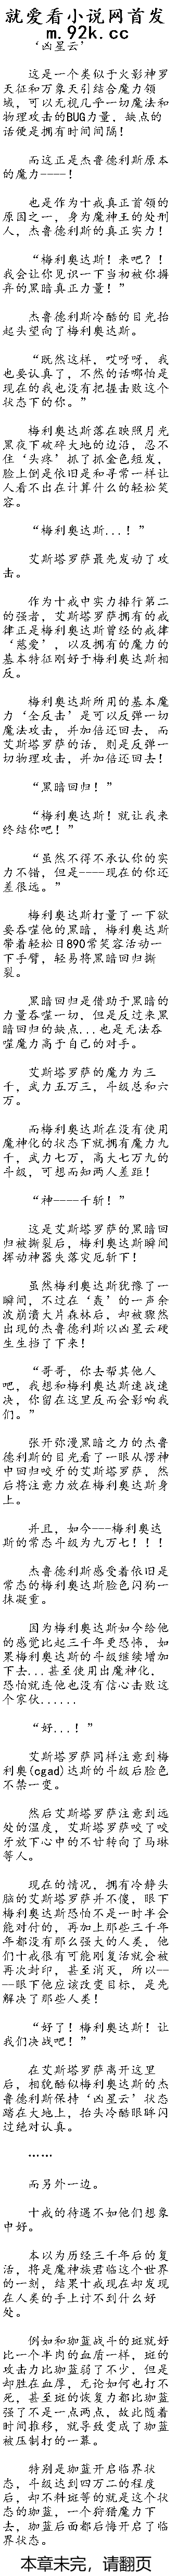 就爱看小说网首发
m.92k.cc
‘凶星云’
这是一个类似于火影神罗
天征和万象天引结合魔力领
域，可以无视几乎一切魔法和
物理攻击的BUG力量，缺点的
话便是拥有时间间隔！
而这正是杰鲁德利斯原本
的魔力----！
也是作为十戒真正首领的
原因之一，身为魔神王的处刑
人，杰鲁德利斯的真正实力！
“梅利奥达斯！来吧？！
我会让你见识一下当初被你摒
弃的黑暗真正力量！”
杰鲁德利斯冷酷的目光抬
起头望向了梅利奥达斯。
“既然这样，哎呀呀，我
也要认真了，不然的话哪怕是
现在的我也没有把握击败这个
状态下的你。”
梅利奥达斯落在映照月光
黑夜下破碎大地的边沿，忍不
住‘头疼’抓了抓金色短发，
脸上倒是依旧是和寻常一样让
人看不出在计算什么的轻松笑
容。
“梅利奥达斯...！”
艾斯塔罗萨最先发动了攻
击。
作为十戒中实力排行第二
的强者，艾斯塔罗萨拥有的戒
律正是梅利奥达斯曾经的戒律
‘慈爱’，以及拥有的魔力的
基本特征刚好于梅利奥达斯相
反。
梅利奥达斯所用的基本魔
力‘全反击’是可以反弹一切
魔法攻击，并加倍还回去，而
艾斯塔罗萨的话，则是反弹一
切物理攻击，并加倍还回去！
“黑暗回归！”
“梅利奥达斯！就让我来
终结你吧！”
“虽然不得不承认你的实
力不错，但是----现在的你还
差很远。”
梅利奥达斯打量了一下欲
要吞噬他的黑暗，梅利奥达斯
带着轻松日890常笑容活动一
下手臂，轻易将黑暗回归撕
裂。
黑暗回归是借助于黑暗的
力量吞噬一切，但是反过来黑
暗回归的缺点...也是无法吞
噬魔力高于自己的对手。
艾斯塔罗萨的魔力为三
千，武力五万三，斗级总和六
万。
而梅利奥达斯在没有使用
魔神化的状态下就拥有魔力九
千，武力七万，高大七万九的
斗级，可想而知两人差距！
“神----千斩！”
这是艾斯塔罗萨的黑暗回
归被撕裂后，梅利奥达斯瞬间
挥动神器失落灾厄斩下！
虽然梅利奥达斯犹豫了一
瞬间，不过在‘轰’的一声余
波崩溃大片森林后，却被骤然
出现的杰鲁德利斯以凶星云硬
生生挡了下来！
“哥哥，你去帮其他人
吧，我想和梅利奥达斯速战速
决，你留在这里反而会影响我
们。”
张开弥漫黑暗之力的杰鲁
德利斯的目光看了一眼从愣神
中回归咬牙的艾斯塔罗萨，然
后将注意力放在梅利奥达斯身
上。
并且，如今---梅利奥达
斯的常态斗级为九万七！！！
杰鲁德利斯感受着依旧是
常态的梅利奥达斯脸色闪狗一
抹凝重。
因为梅利奥达斯如今给他
的感觉比起三千年更恐怖，如
果梅利奥达斯的斗级继续增加
下去...甚至使用出魔神化，
恐怕就连他也没有信心击败这
个家伙......
“好...！”
艾斯塔罗萨同样注意到梅
利奥(cgad)达斯的斗级后脸色
不禁一变。
然后艾斯塔罗萨注意到远
处的温度，艾斯塔罗萨咬了咬
牙放下心中的不甘转向了马琳
等人。
现在的情况，拥有冷静头
脑的艾斯塔罗萨并不傻，眼下
梅利奥达斯恐怕不是一时半会
能对付的，再加上那些三千年
年都没有那么强大的人类，他
们十戒很有可能刚复活就会被
再次封印，甚至消灭，所以---
-眼下他应该改变目标，是先
解决了那些人类！
“好了！梅利奥达斯！让
我们决战吧！”
在艾斯塔罗萨离开这里
后，相貌酷似梅利奥达斯的杰
鲁德利斯保持‘凶星云’状态
踏在大地上，抬头冷酷眼眸闪
过绝对认真。
……
而另外一边。
十戒的待遇不如他们想象
中好。
本以为历经三千年后的复
活，将是魔神族君临这个世界
的一刻，结果十戒现在却发现
在人类的手上讨不到什么好
处。
例如和珈蓝战斗的斑就好
比一个半肉的血盾一样，斑的
攻击力比珈蓝弱了不少，但是
却胜在血厚，无论如何也打不
死，甚至斑的恢复力都比珈蓝
强了不是一点两点，故此随着
时间推移，就导致变成了珈蓝
被压制打的一幕。
特别是珈蓝开启临界状
态，斗级达到四万二的程度
后，却不料斑等的就是这个状
态的珈蓝，一个狩猎魔力下
去，珈蓝后面都后悔开启了临
界状态。
本章未完，请翻页